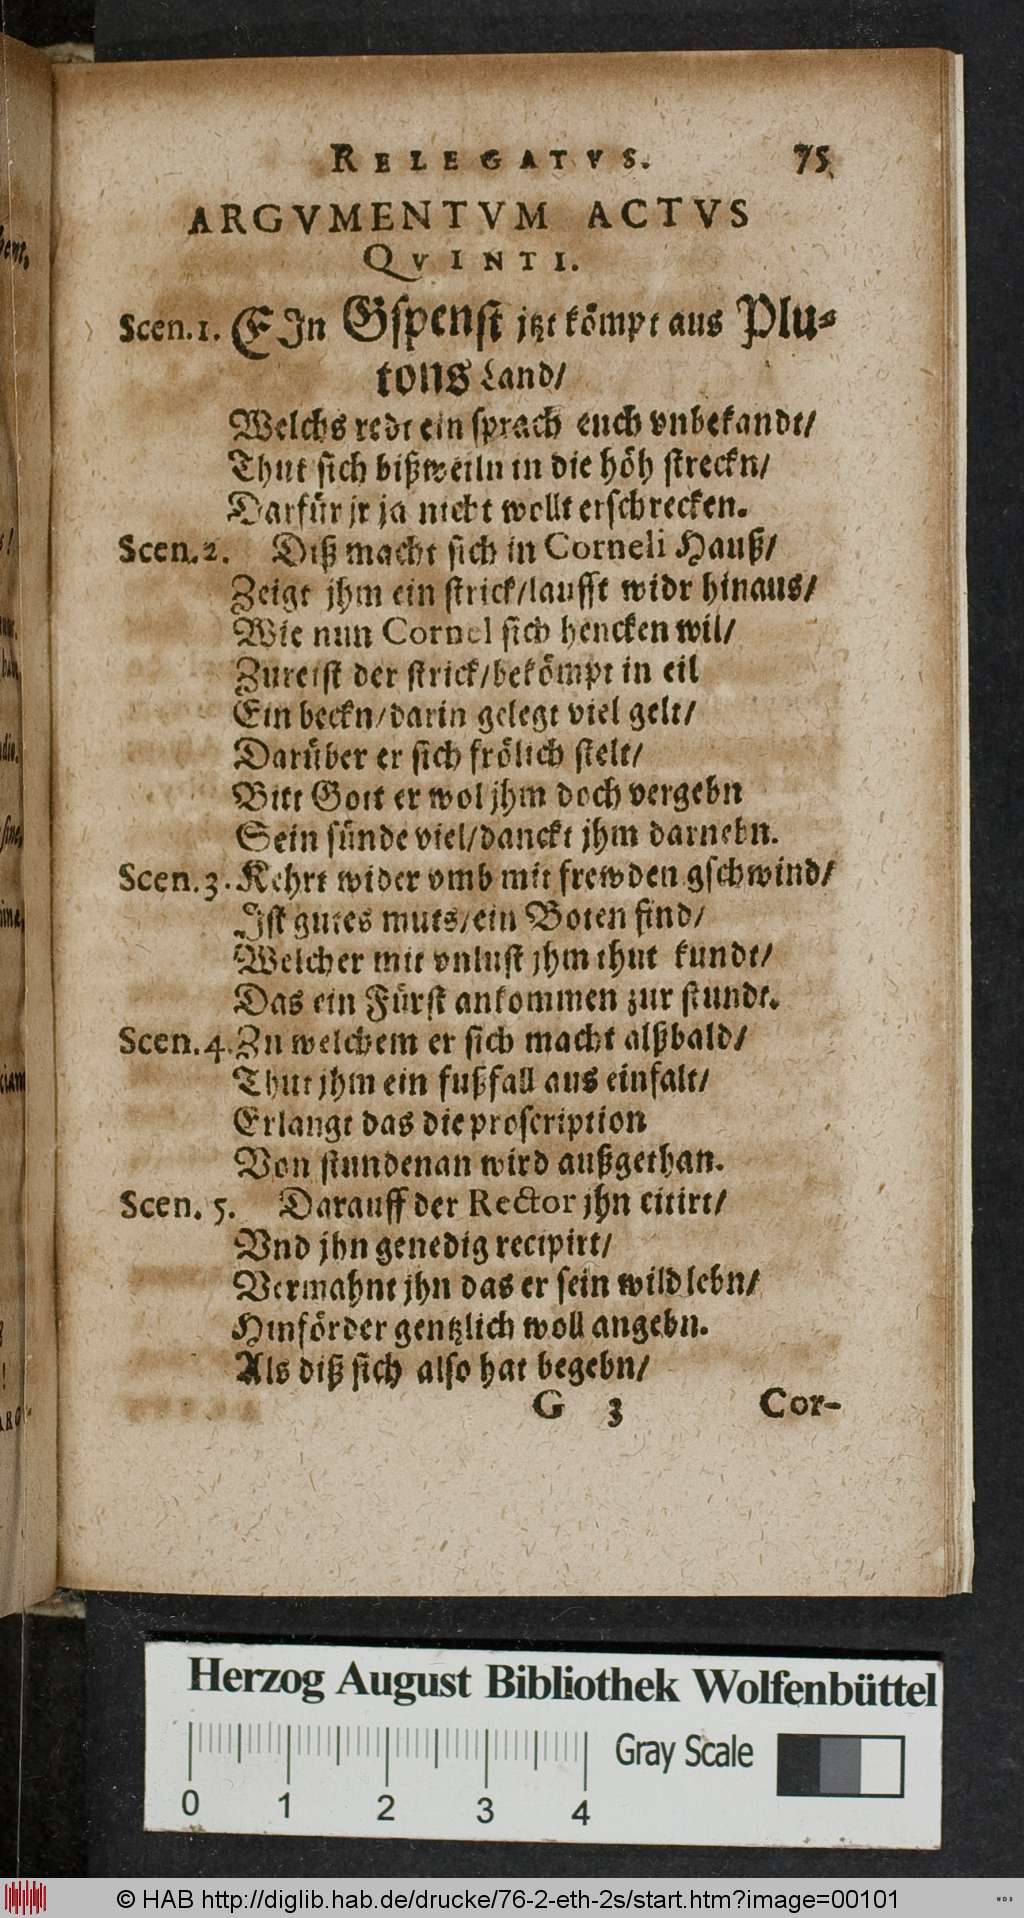 RELEGATVS. 75
ARGVMENTVM ACTVS
QVINTI.
Scen.1. EIn Gſpenſt jtzt kömpt aus Plu⸗
tons Land/
Welchs redt ein ſprach euch vnbekandt/
Thut ſich bißweiln in die höh ſtreckn/
Darfür jr ja nicht wollt erſchrecken.
Scen.2. Diß macht ſich in Corneli Hauß/
Zeigt jhm ein ſtrick/laufft widr hinaus/
Wie nun Cornel ſich hencken wil/
Zureiſt der ſtrick/bekömpt in eil
Ein beckn/darin gelegt viel gelt/
Darüber er ſich frölich ſtelt/
Bitt Gott er wol jhm doch vergebn
Sein ſünde viel/danckt jhm darnebn.
Scen.3. Kehrt wider vmb mit frewden gſchwind/
Iſt gutes muts/ein Boten find/
Welcher mit vnluſt jhm thut kundt/
Das ein Fürſt ankommen zur ſtundt.
Scen.4. Zu welchem er ſich macht alßbald/
Thut jhm ein fußfall aus einfalt/
Erlangt das die proſcription
Von ſtundenan wird außgethan.
Scen. 5. Darauff der Rector jhn citirt/
Vnd jhn genedig recipirt/
Vermahnt jhn das er ſein wild lebn/
Hinförder gentzlich woll angebn.
Als diß ſich alſo hat begebn/
G 3 Cor-
Herzog August Bibliothek Wolfenbüttel
Gray Scale
0 1 2 3 4
© HAB http://diglib.hab.de/drucke/76-2-eth-2s/start.htm?image=00101